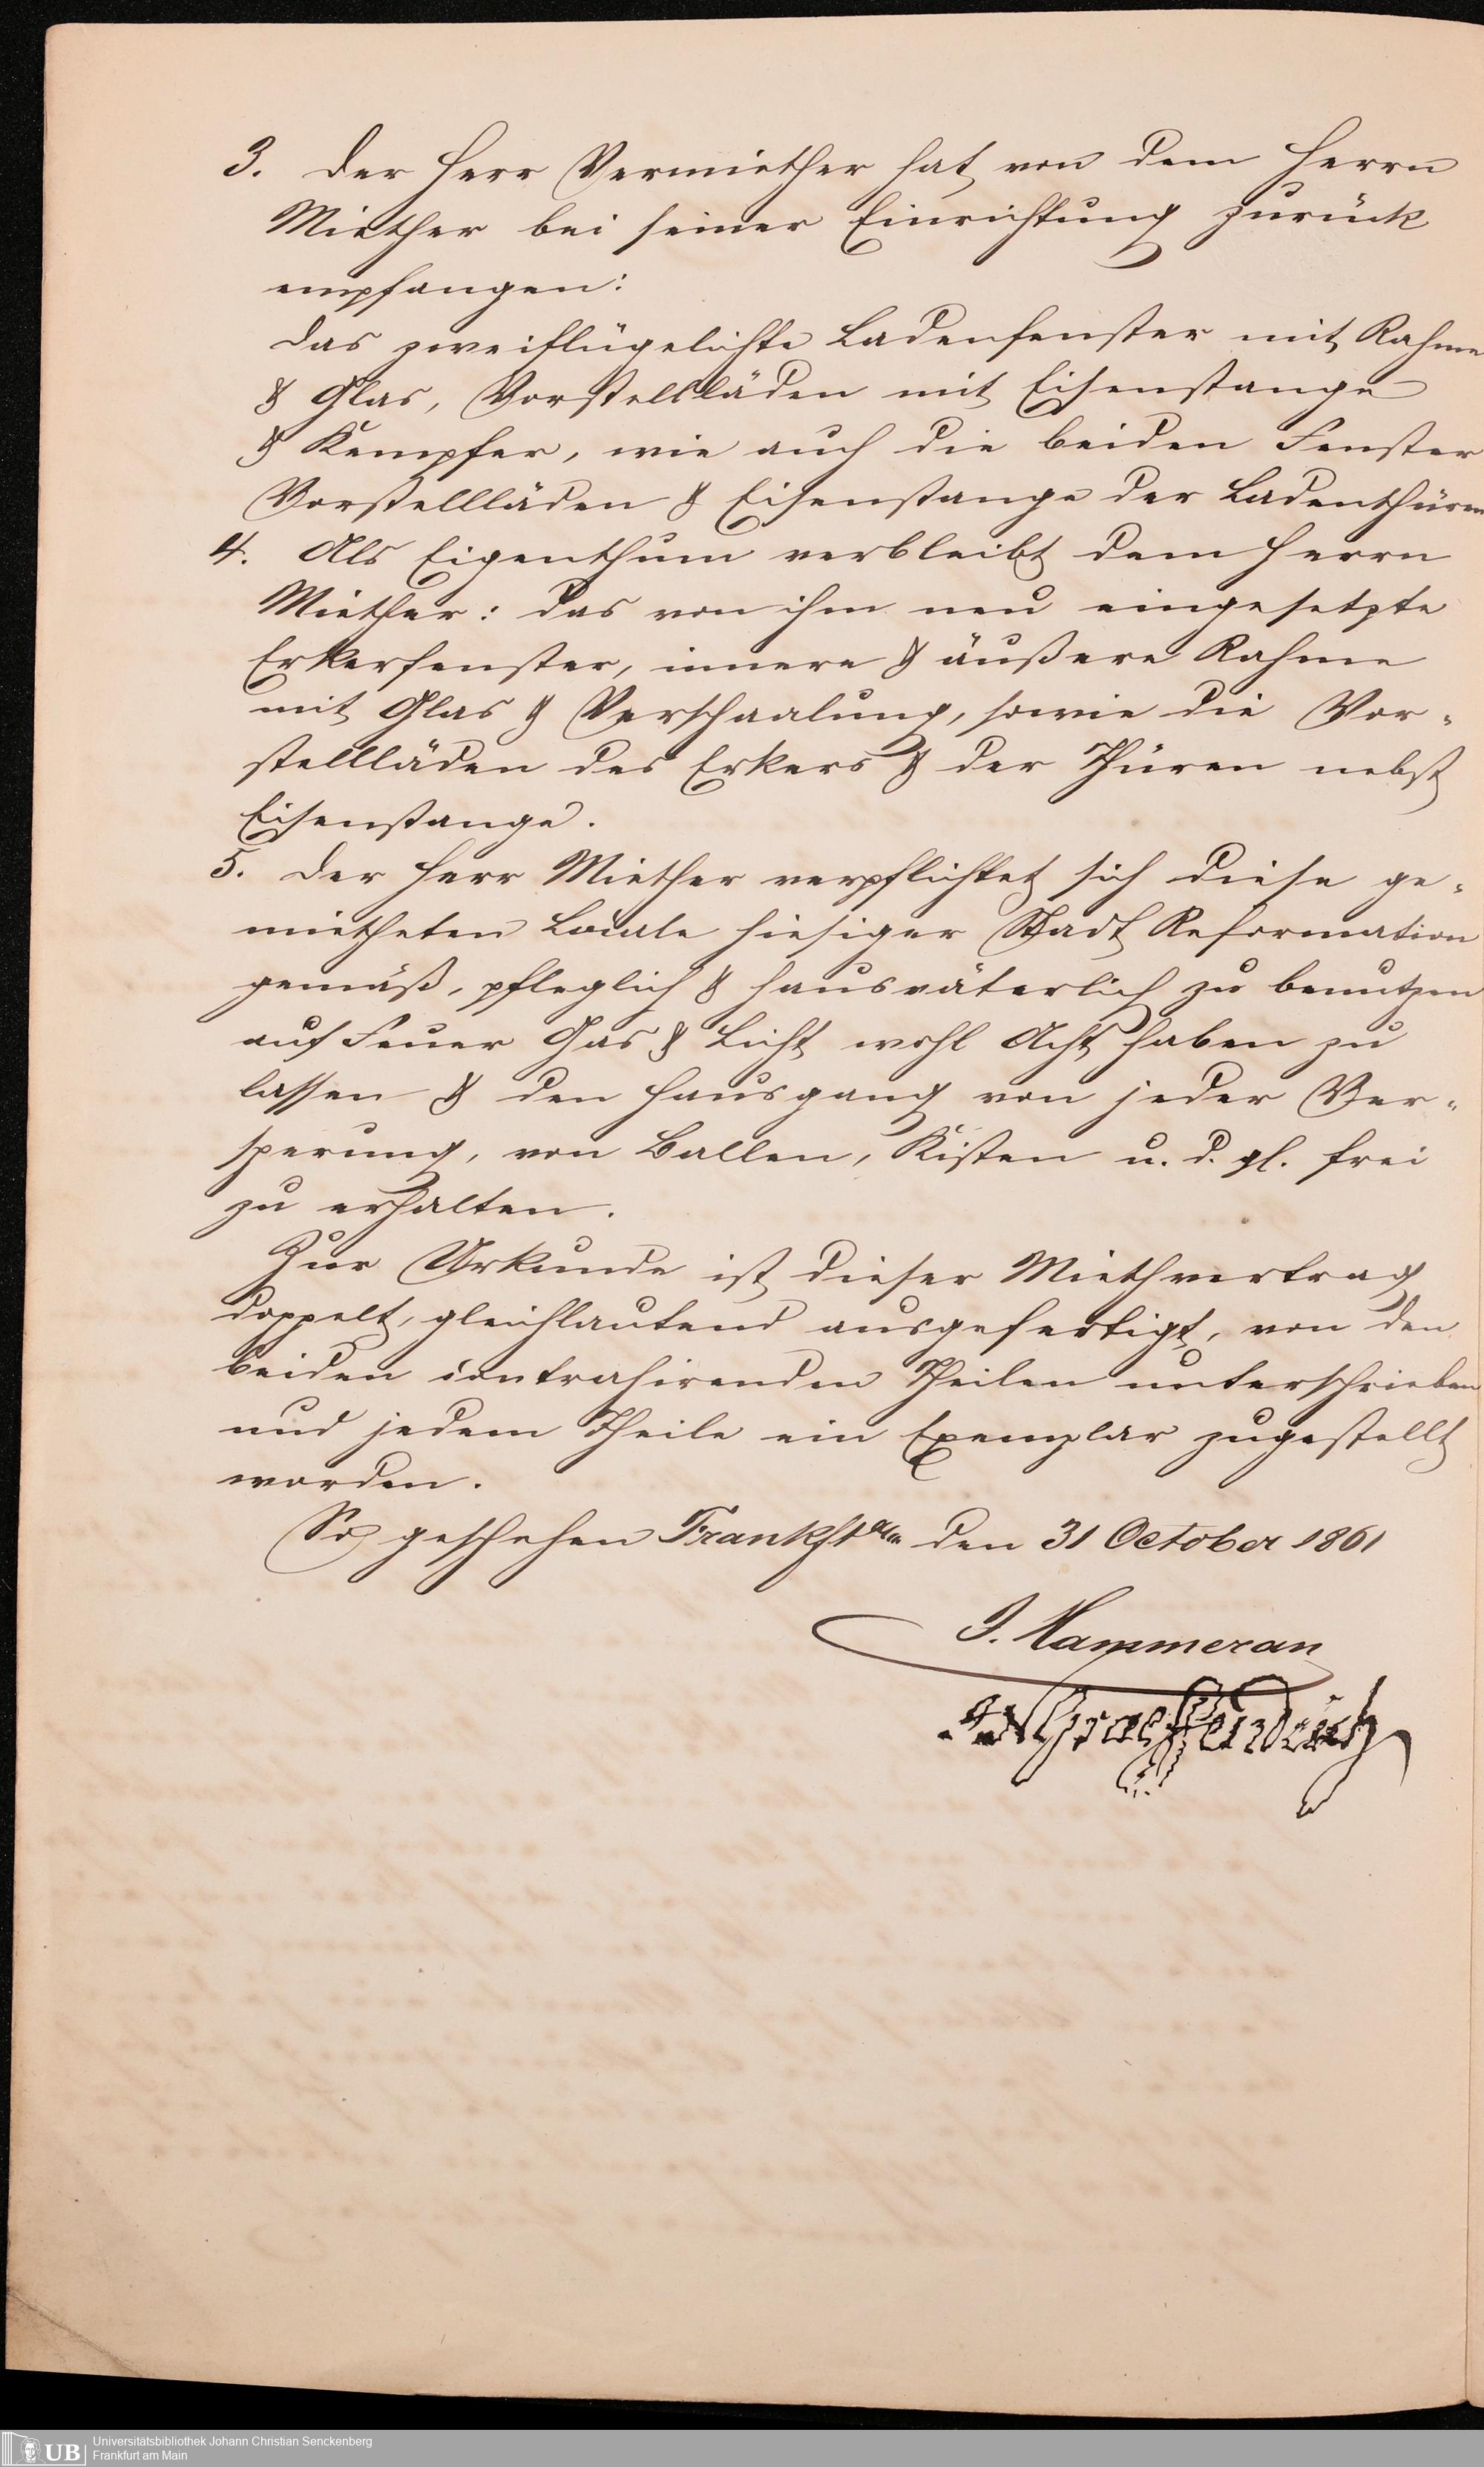 3. Der Herr Vermiether hat von dem Herrn
Miether bei seiner Einrichtung zurück
empfangen:
das zweiflügelichte Ladenfenster mit Rahme
& Glas, Vorstellläden mit Eisenstange
& Kempfer, wie auch die beiden Fenster
Vorstellläden & Eisenstange der Ladenthüren
4. Als Eigenthum verbleibt dem Herrn
Miether: das von ihm neu eingesetzte
Erkerfenster, innere & äußere Rahme
mit Glas & Verschaalung, sowie die Vor-
stellläden des Erkers & der Thüren nebst
Eisenstange.
5. Der Herr Miether verpflichtet sich diese ge-
mietheten Locale hiesiger Stadt Reformation
gemäß, pfleglich & hausväterlich zu benutzen
auf Feuer Gas & Licht wohl Acht haben zu
lassen & den Hausgang von jeder Ver-
sperung, von Ballen, Kisten u. d. gl. frei
zu erhalten.
Zur Urkunde ist dieser Miethvertrag
doppelt, gleichlautend ausgefertigt, von den
beiden contrahirenden Theilen unterschrieben
und jedem Theile ein Exemplar zugestellt
worden.
So geschehen Frankft a/m den 31 October 1861
J. Hammeran
Graeffendeich
UB
Universitätsbibliothek Johann Christian Senckenberg
Frankfurt am Main